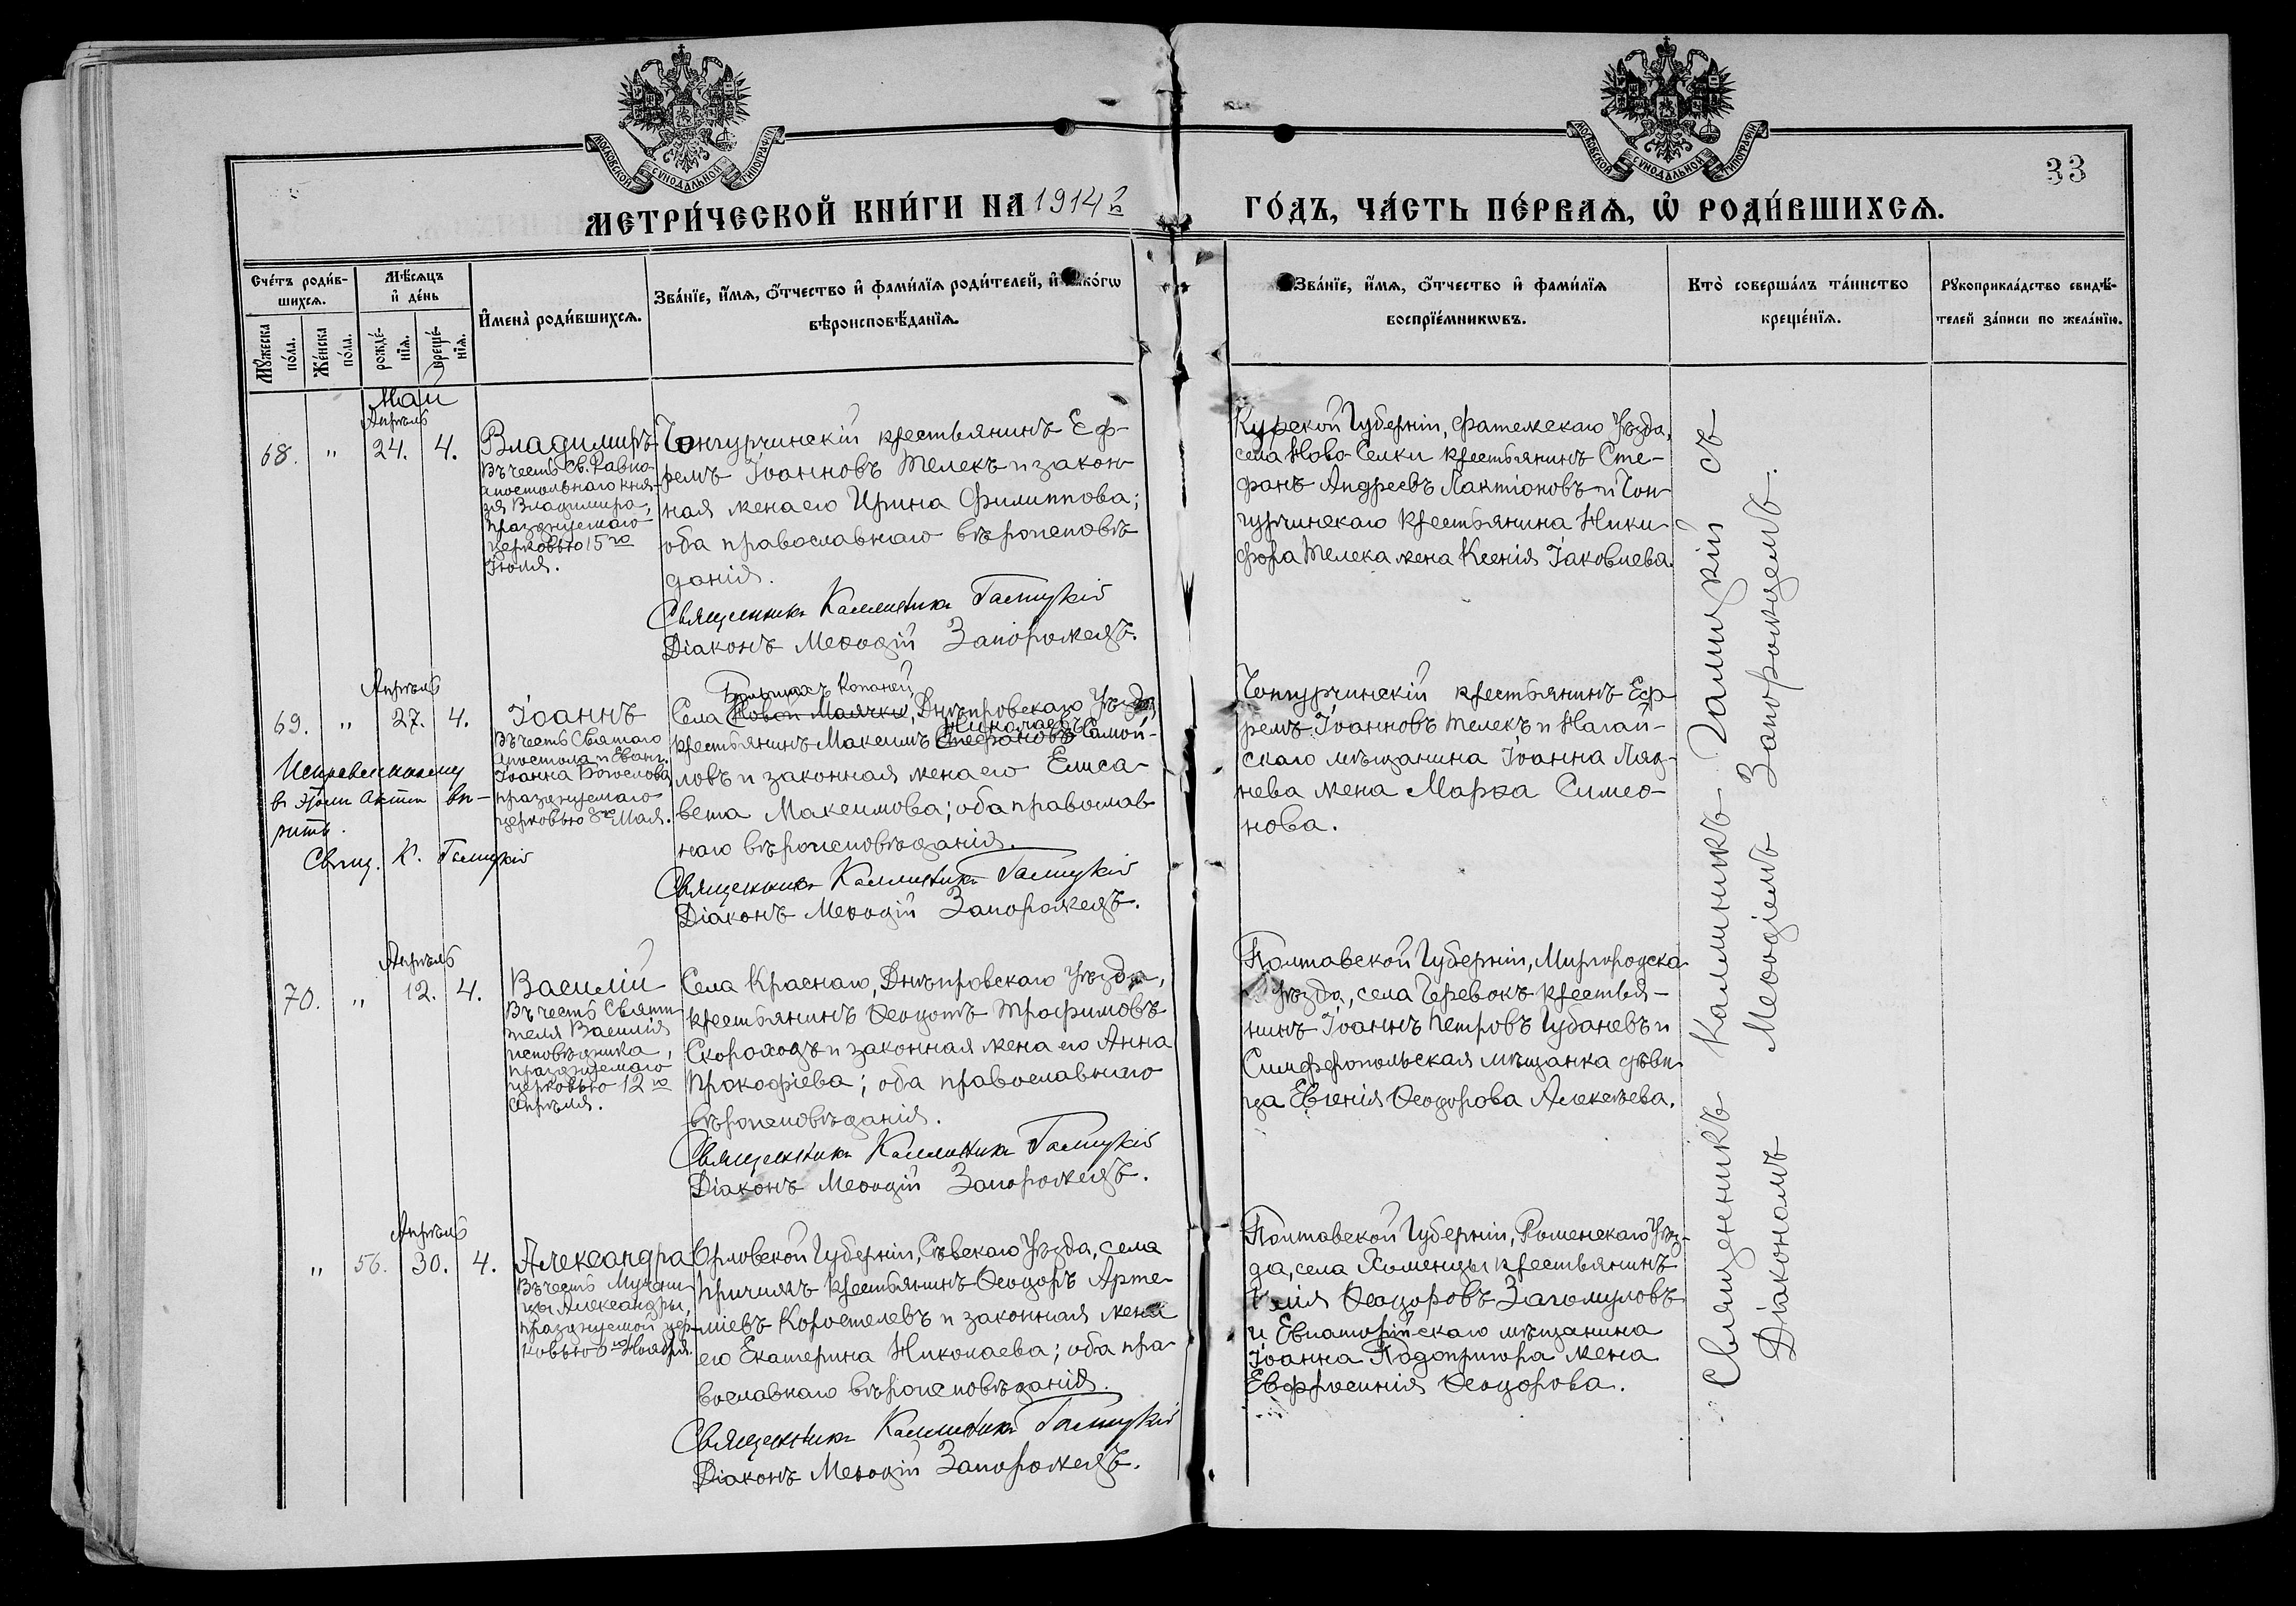 МОСКОВСКОЙ СѴНОДАЛЬНОЙ ТИПОГРАФІИ
МОСКОВСКОЙ СѴНОДАЛЬНОЙ ТИПОГРАФІИ
33
МЕТРИ́ЧЕСКОЙ КНИ́ГИ НА 1914 г
ГО́ДЪ, ЧА́СТЬ ПЕ́РВАѦ, Ѡ҆ РОДИ́ВШИХСѦ.
Сче́тъ роди́в-
шихсѧ.
Мꙋ́жеска по́ла.
Же́нска по́ла.
Мѣ́сѧцъ
и҆ де́нь
рожде́-
нїѧ.
креще́-
нїѧ.
И҆мена̀ роди́вшихсѧ.
Зва́нїе, и҆́мѧ, ѻ҆́тчество и҆ фами́лїѧ роди́телей, и҆ како́гѡ
вѣроисповѣ́данїѧ.
Зва́нїе, и҆́мѧ, ѻ҆́тчество и҆ фами́лїѧ
воспрїе́мникѡвъ.
Кто̀ соверша́лъ та́инство
креще́нїѧ.
Рꙋкоприкла́дство свидѣ́-
телей за́писи по жела́нїю.
Май
Апрѣль
68. " 24. 4.
Владимиръ
Въ честь Св. Равно-
апостольнаго кня-
зя Владимира,
празднуемаго
церковью 15го
Іюля.
Чонгурчинскій крестьянинъ Еф-
ремъ Іоанновъ Телекъ и закон-
ная жена его Ирина Филиппова;
оба православнаго вѣроисповѣ-
данія.
Священникъ Каллиникъ Галицкій
Діаконъ Меѳодій Запорожецъ.
Курской Губерніи, Фатежскаго Уѣзда,
села Ново-Селки крестьянинъ Сте-
фанъ Андреевъ Лактіоновъ и Чон-
гурчинскаго крестьянина Ники-
фора Телека жена Ксенія Іаковлева.
Апрѣль
69. " 27. 4.
Іоаннъ
Въ честь Святаго
Апостола и Еванг.
Іоанна Богослова,
празднуемаго
церковью 8го Мая.
Исправленному
въ этом актѣ вѣ-
рить.
Свящ. К. Галицкій
Большихъ Копаней
Села Новой Маячки, Днѣпровскаго Уѣзда,
Николаевъ
крестьянинъ Максимъ Стефановъ Самой-
ловъ и законная жена его Елиса-
вета Максимова; оба православ-
наго вѣроисповѣданія.
Священникъ Каллиникъ Галицкій
Діаконъ Меѳодій Запорожецъ.
Чонгурчинскій крестьянинъ Еф-
ремъ Іоанновъ Телекъ и Нагай-
скаго мѣщанина Іоанна Ляд-
нева жена Марѳа Симео-
нова.
Апрѣль
70. " 12. 4.
Василій
Въ честь Святи-
теля Василія
исповѣдника,
празднуемаго
церковью 12го
Апрѣля.
Села Краснаго, Днѣпровскаго Уѣзда,
крестьянинъ Ѳеодотъ Трофимовъ
Скороходъ и законная жена его Анна
Прокофіева; оба православнаго
вѣроисповѣданія.
Священникъ Каллиникъ Галицкій
Діаконъ Меѳодій Запорожецъ.
Полтавской Губерніи, Миргородска-
Уѣзда, села Черевокъ крестья-
нинъ Іоаннъ Петровъ Губаневъ и
Симферопольская мѣщанка дѣви-
ца Евгенія Ѳеодорова Алексѣева.
Апрѣль
" 56. 30. 4.
Александра
Въ честь Мучени-
цы Александры,
празднуемой цер-
ковью 6го Ноября.
Орловской Губерніи, Сѣвскаго Уѣзда, села
Причижъ крестьянинъ Ѳеодоръ Арте-
міевъ Коростелевъ и законная жена
его Екатерина Николаева; оба пра-
вославнаго вѣроисповѣданія.
Священникъ Каллиникъ Галицкій
Діаконъ Меѳодій Запорожецъ.
Полтавской Губерніи, Роменскаго Уѣз-
да, села Хоменцы крестьянинъ
Ѳеодоровъ Загомуловъ
и Евпаторійскаго мѣщанина
Іоанна Подопригора жена
Евфросинія Ѳеодорова.
Священникъ Каллиникъ Галицкій съ
Діакономъ Меѳодіемъ Запорожцемъ.